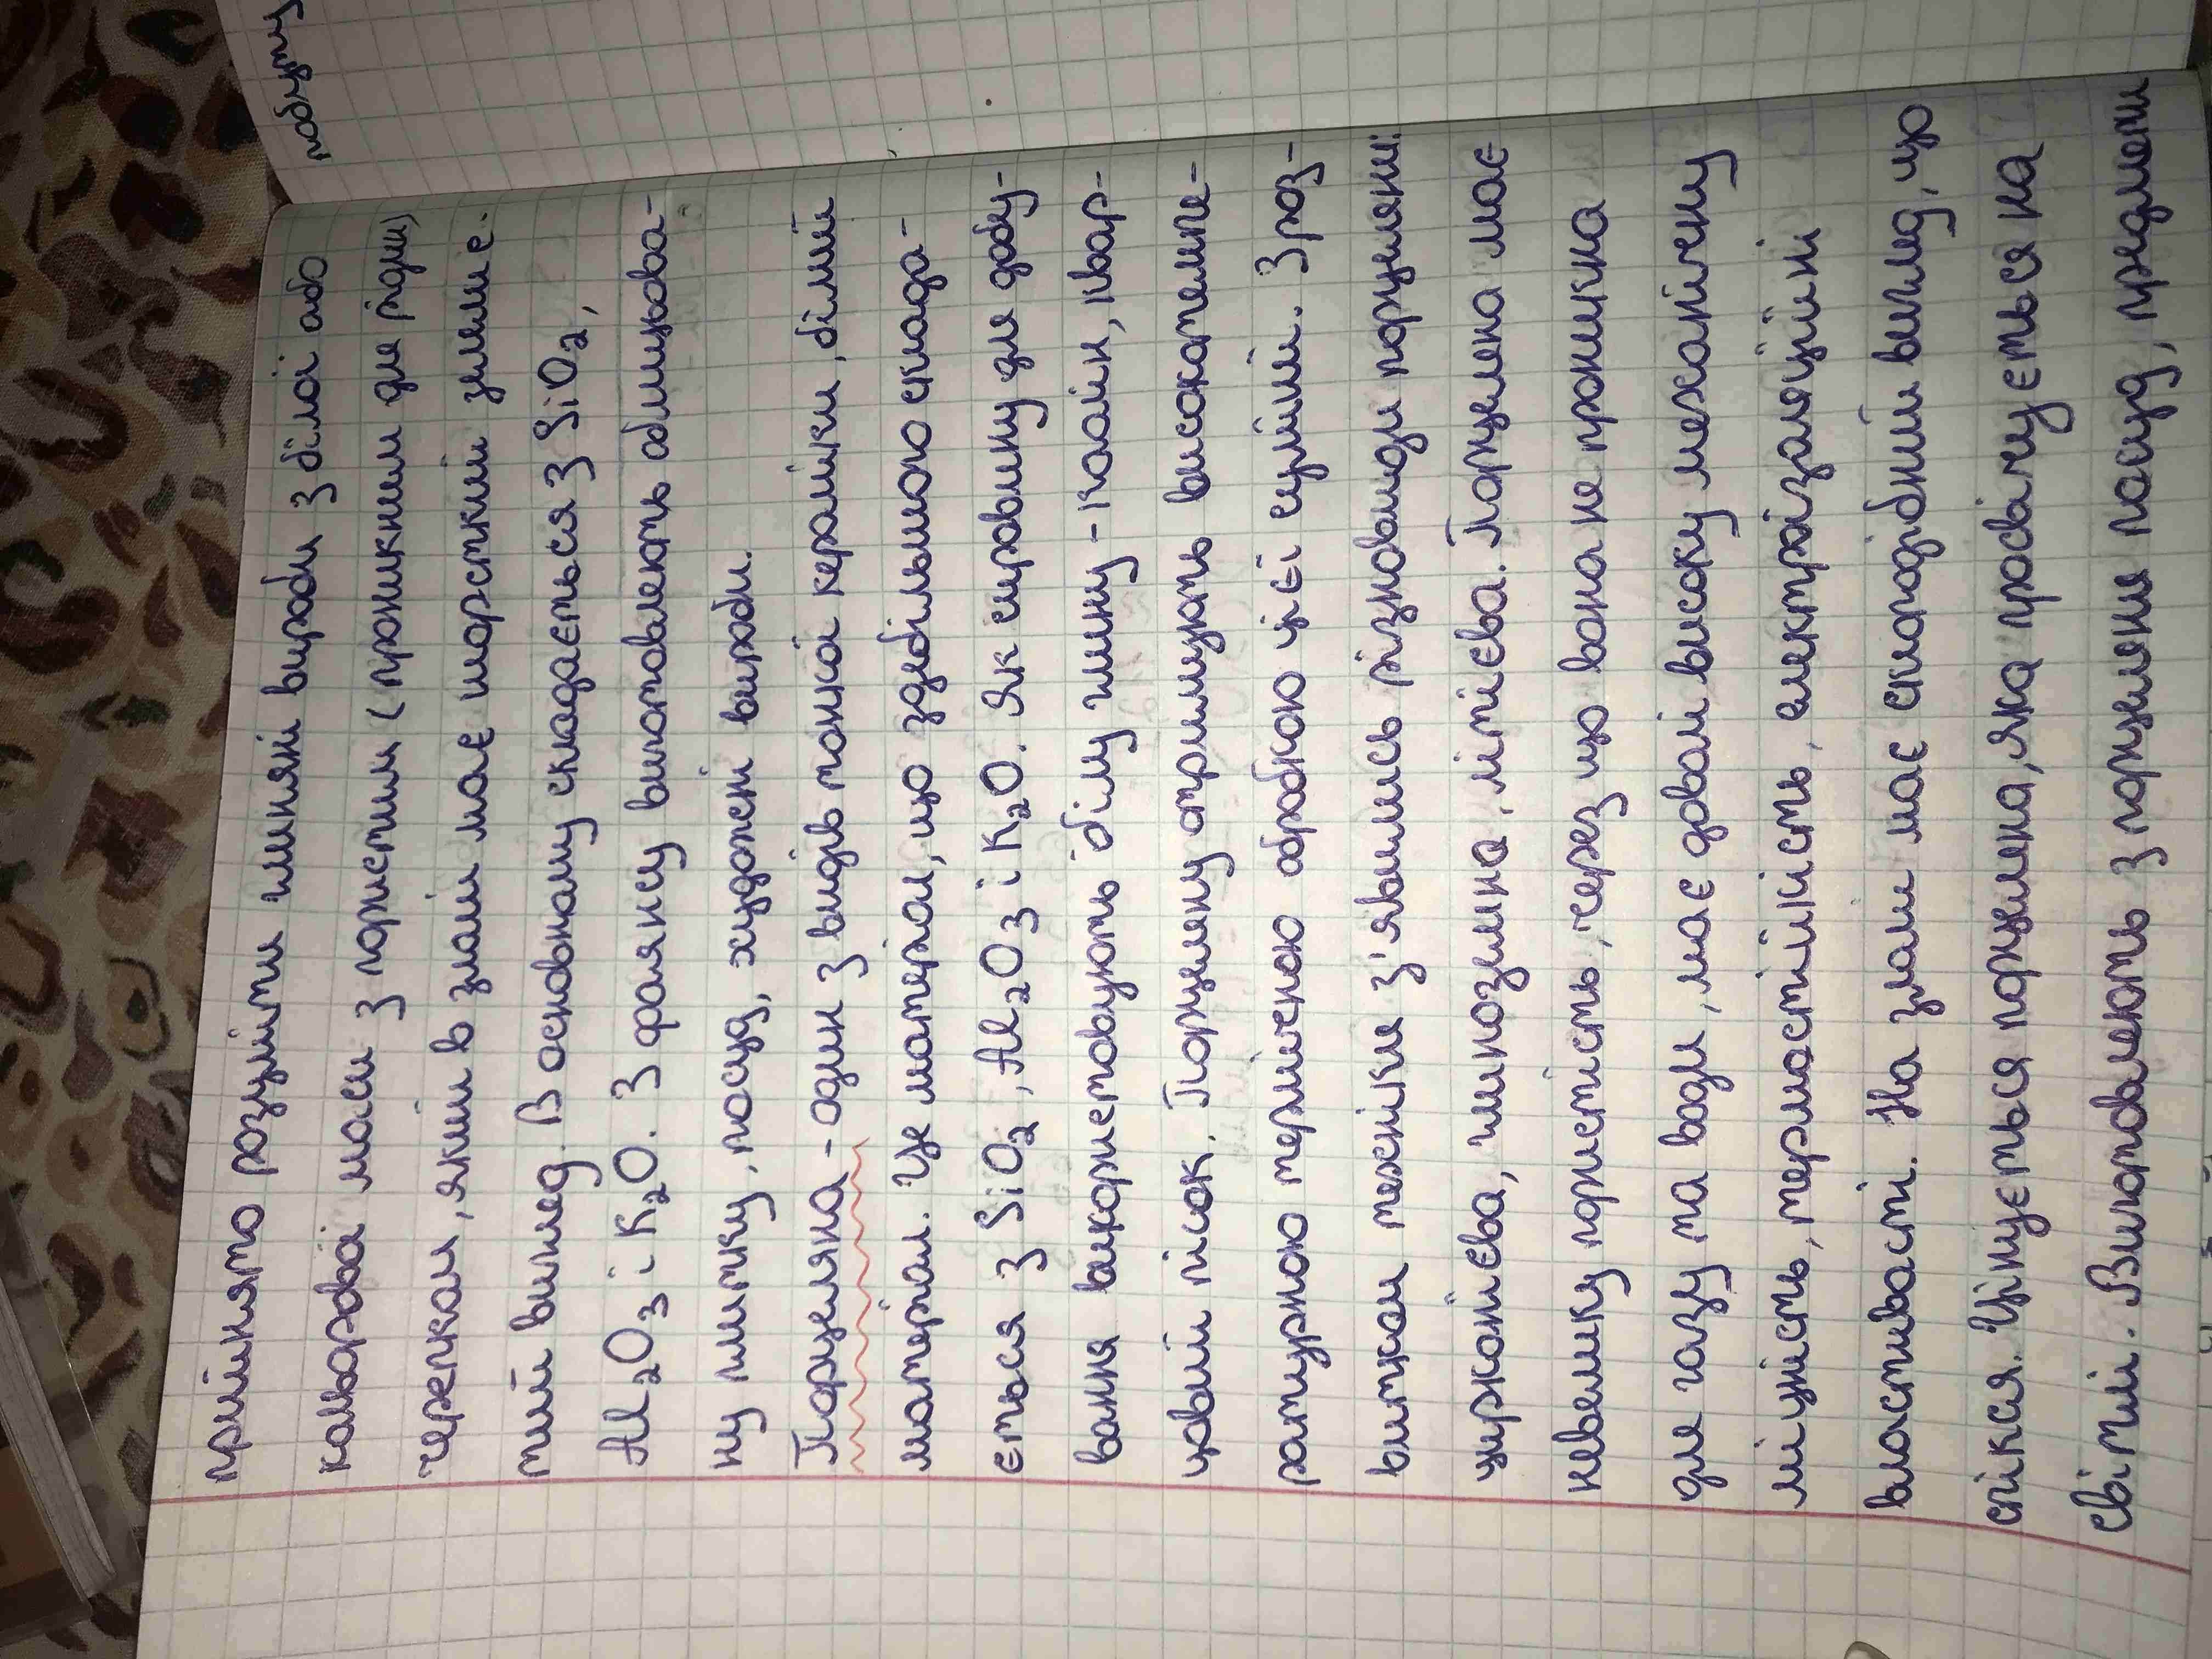 прийнято розуміти глиняні вироби з білої або
кольорової маси з пористим (проникним для рідин)
черепком, який в зламі має шорсткий землис-
тий вигляд. В основному складається з SiO₂,
Al₂O₃ і K₂O. З фаянсу виготовляють облицюва-
ну плитку, посуд, художні вироби.
Порцеляна - один з видів тонкої кераміки, білий
матеріал. Це матеріал, що здебільшого склада-
ється з SiO₂, Al₂O₃ і K₂O. Як сировину для добу-
вання використовують білу глину - каолін, квар-
цовий пісок. Порцеляну отримують високотемпе-
ратурною термічною обробкою цієї суміші. З роз-
витком техніки з'явились різновиди порцеляни:
цирконієва, глиноземна, літієва. Порцеляна має
невелику пористість, через що вона не проникна
для газу та води, має доволі високу механічну
міцність, термостійкість, електроізоляційні
властивості. На злам має склоподібний вигляд, що
спікся. Цінується порцеляна, яка просвічується на
світлі. Виготовляють з порцеляни посуд, предмети
побуту